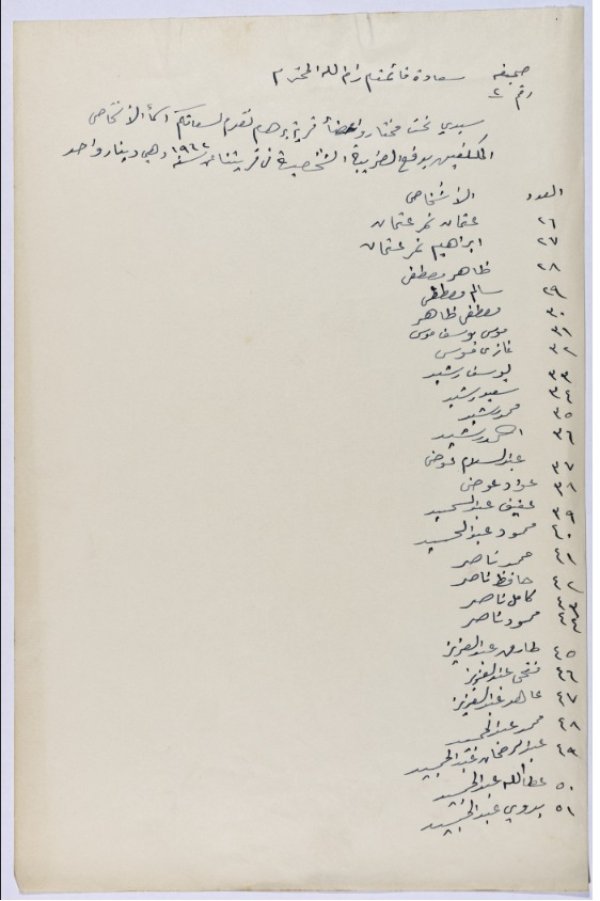 صحيفه سعادة قائمقام رام الله المحترم
رقم ٢
سيدي نحن مختار واعضاء قرية برهم نقدم لسعادتكم اسماء الاشخاص
المكلفين بدفع الضريبة الشخصية في قريتنا سنة ١٩٦٢ وهي دينار واحد
العدد الاشخاص
٢٦ عثمان نمر عثمان
٢٧ ابراهيم نمر عثمان
٢٨ ظاهر مصطفى
٢٩ سالم مصطفى
٣٠ مصطفى ظاهر
٣١ موسى يوسف موسى
٣٢ غازي موسى
٣٣ يوسف رشيد
٣٤ سعيد رشيد
٣٥ محمد رشيد
٣٦ احمد رشيد
٣٧ عبد السلام عوض
٣٨ عواد عوض
٣٩ عفيف
٤٠ محمود
٤١ محمد ناصر
٤٢ حافظ ناصر
٤٣ كامل ناصر
٤٤ محمود ناصر
٤٥ طارق عبد العزيز
٤٦ فتحي عبد العزيز
٤٧ عاهد عبد العزيز
٤٨ محمد
٤٩ عبد الرحمان
٥٠ عطا الله
٥١ بدوي